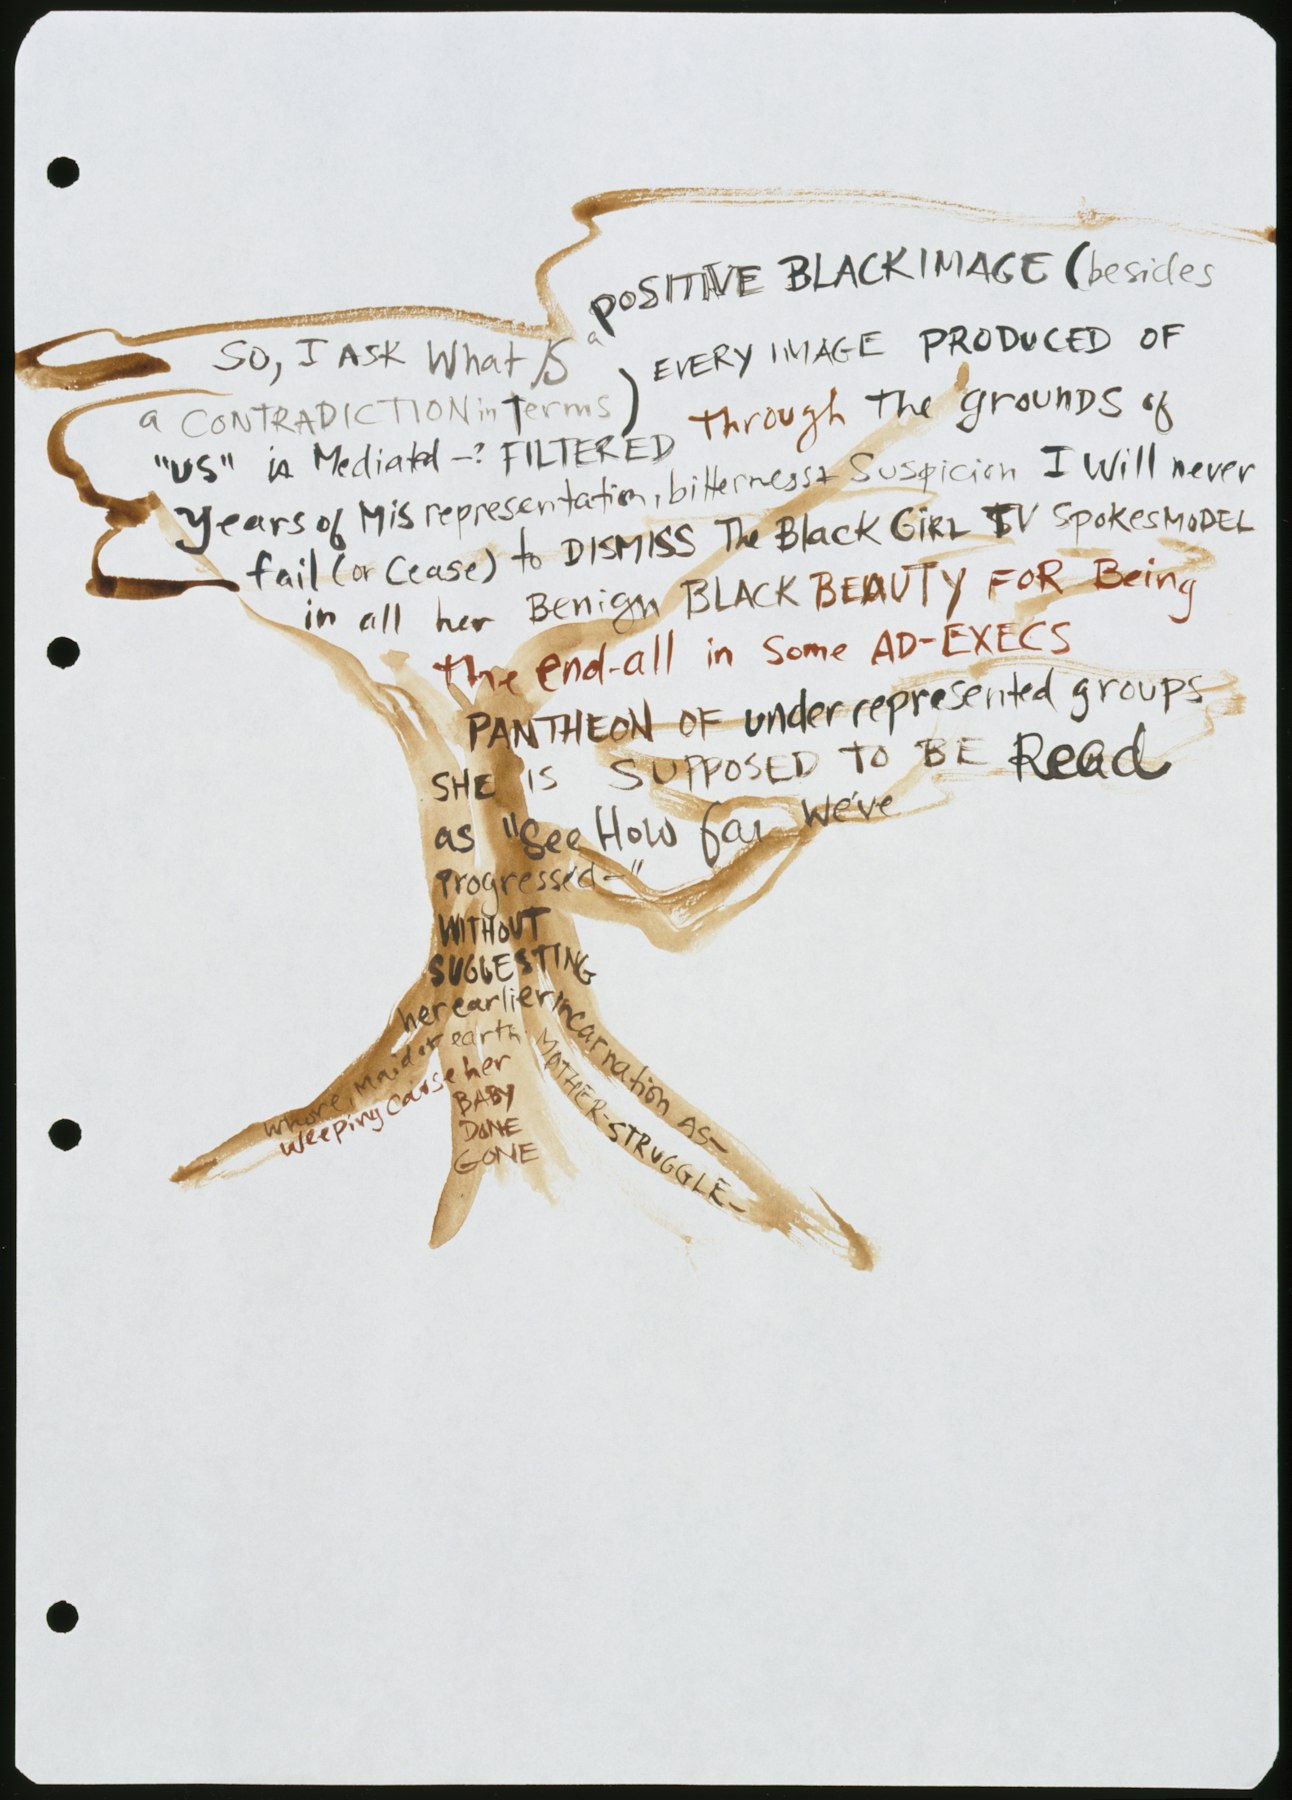 So, I ASK What IS
a POSITIVE BLACK IMAGE (besides
a CONTRADICTION in Terms)
EVERY IMAGE PRODUCED OF
"US" is Mediated -? FILTERED through The grounds of
years of Misrepresentation, bitterness & Suspicion I Will never
fail (or Cease) to DISMISS The Black GIRL TV SpokesMODEL
in all her Benign BLACK BEAUTY FOR Being
the end-all in Some AD-EXECS
PANTHEON OF under represented groups
SHE IS SUPPOSED TO BE Read
as "See How far We've
Progressed-"
WITHOUT
SUGGESTING
her earlier incarnation AS-
whore, Maid or earth MOTHER-STRUGGLE-
Weeping Cause her
BABY
DONE
GONE